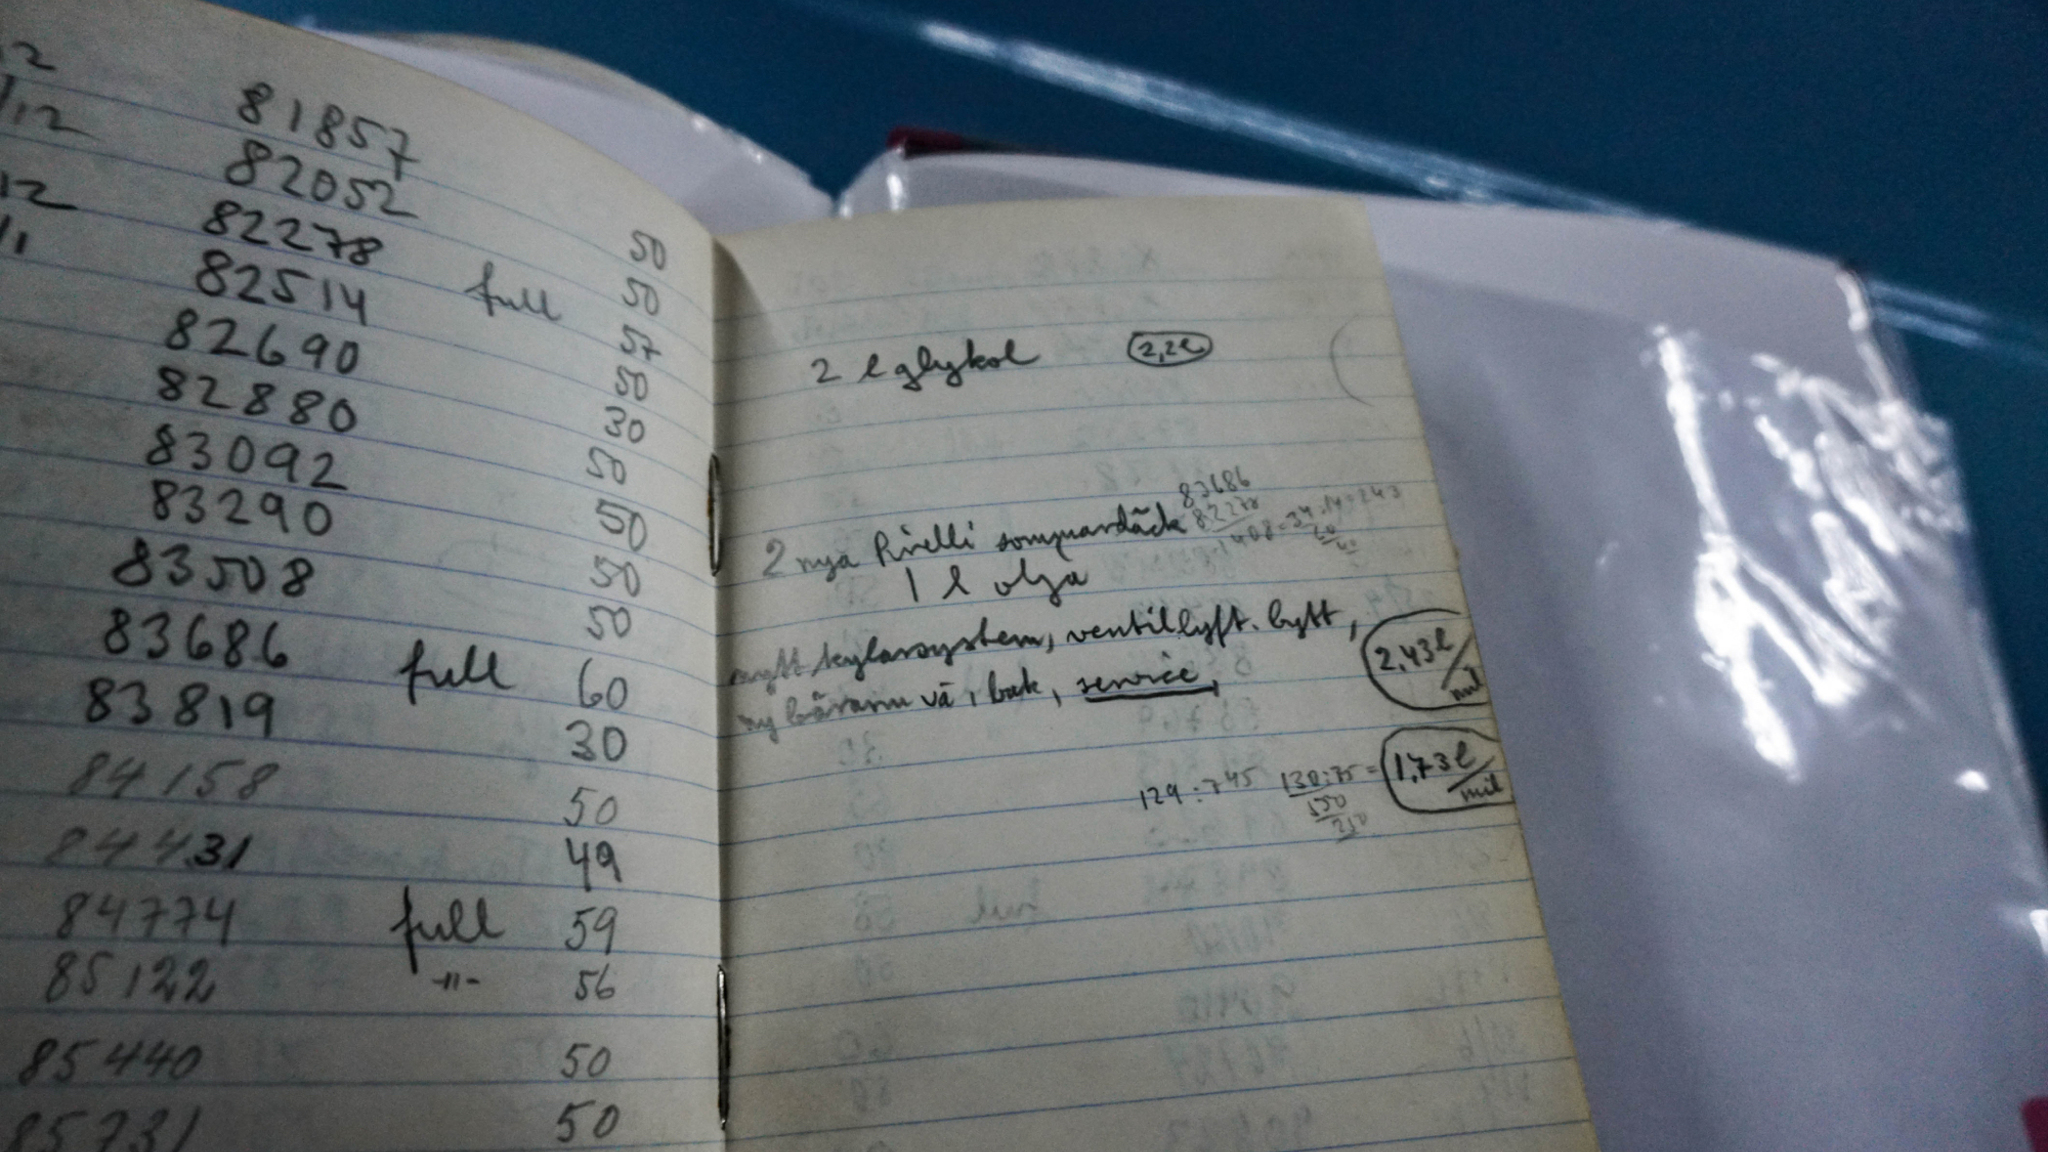 12
/12
12
/1
81857
82052 50
82278 full 50
82514 57
82690 50
82880 30
83092 50
83290 50
83508 50
83686 full 50
83819 60
84158 30
84431 50
84774 full 49
85122 -"- 59
85440 56
85731 50
50
2 l glykol 2,2l
83686
82278
2 nya Pirelli sommardäck 1408 = 34:14=243
1 l olja
kylarsystem, ventillyft. bytt, 2,43l/mil
ny bärarm vä, bak, service,
129:745 130:75= 1,73l/mil
550
250